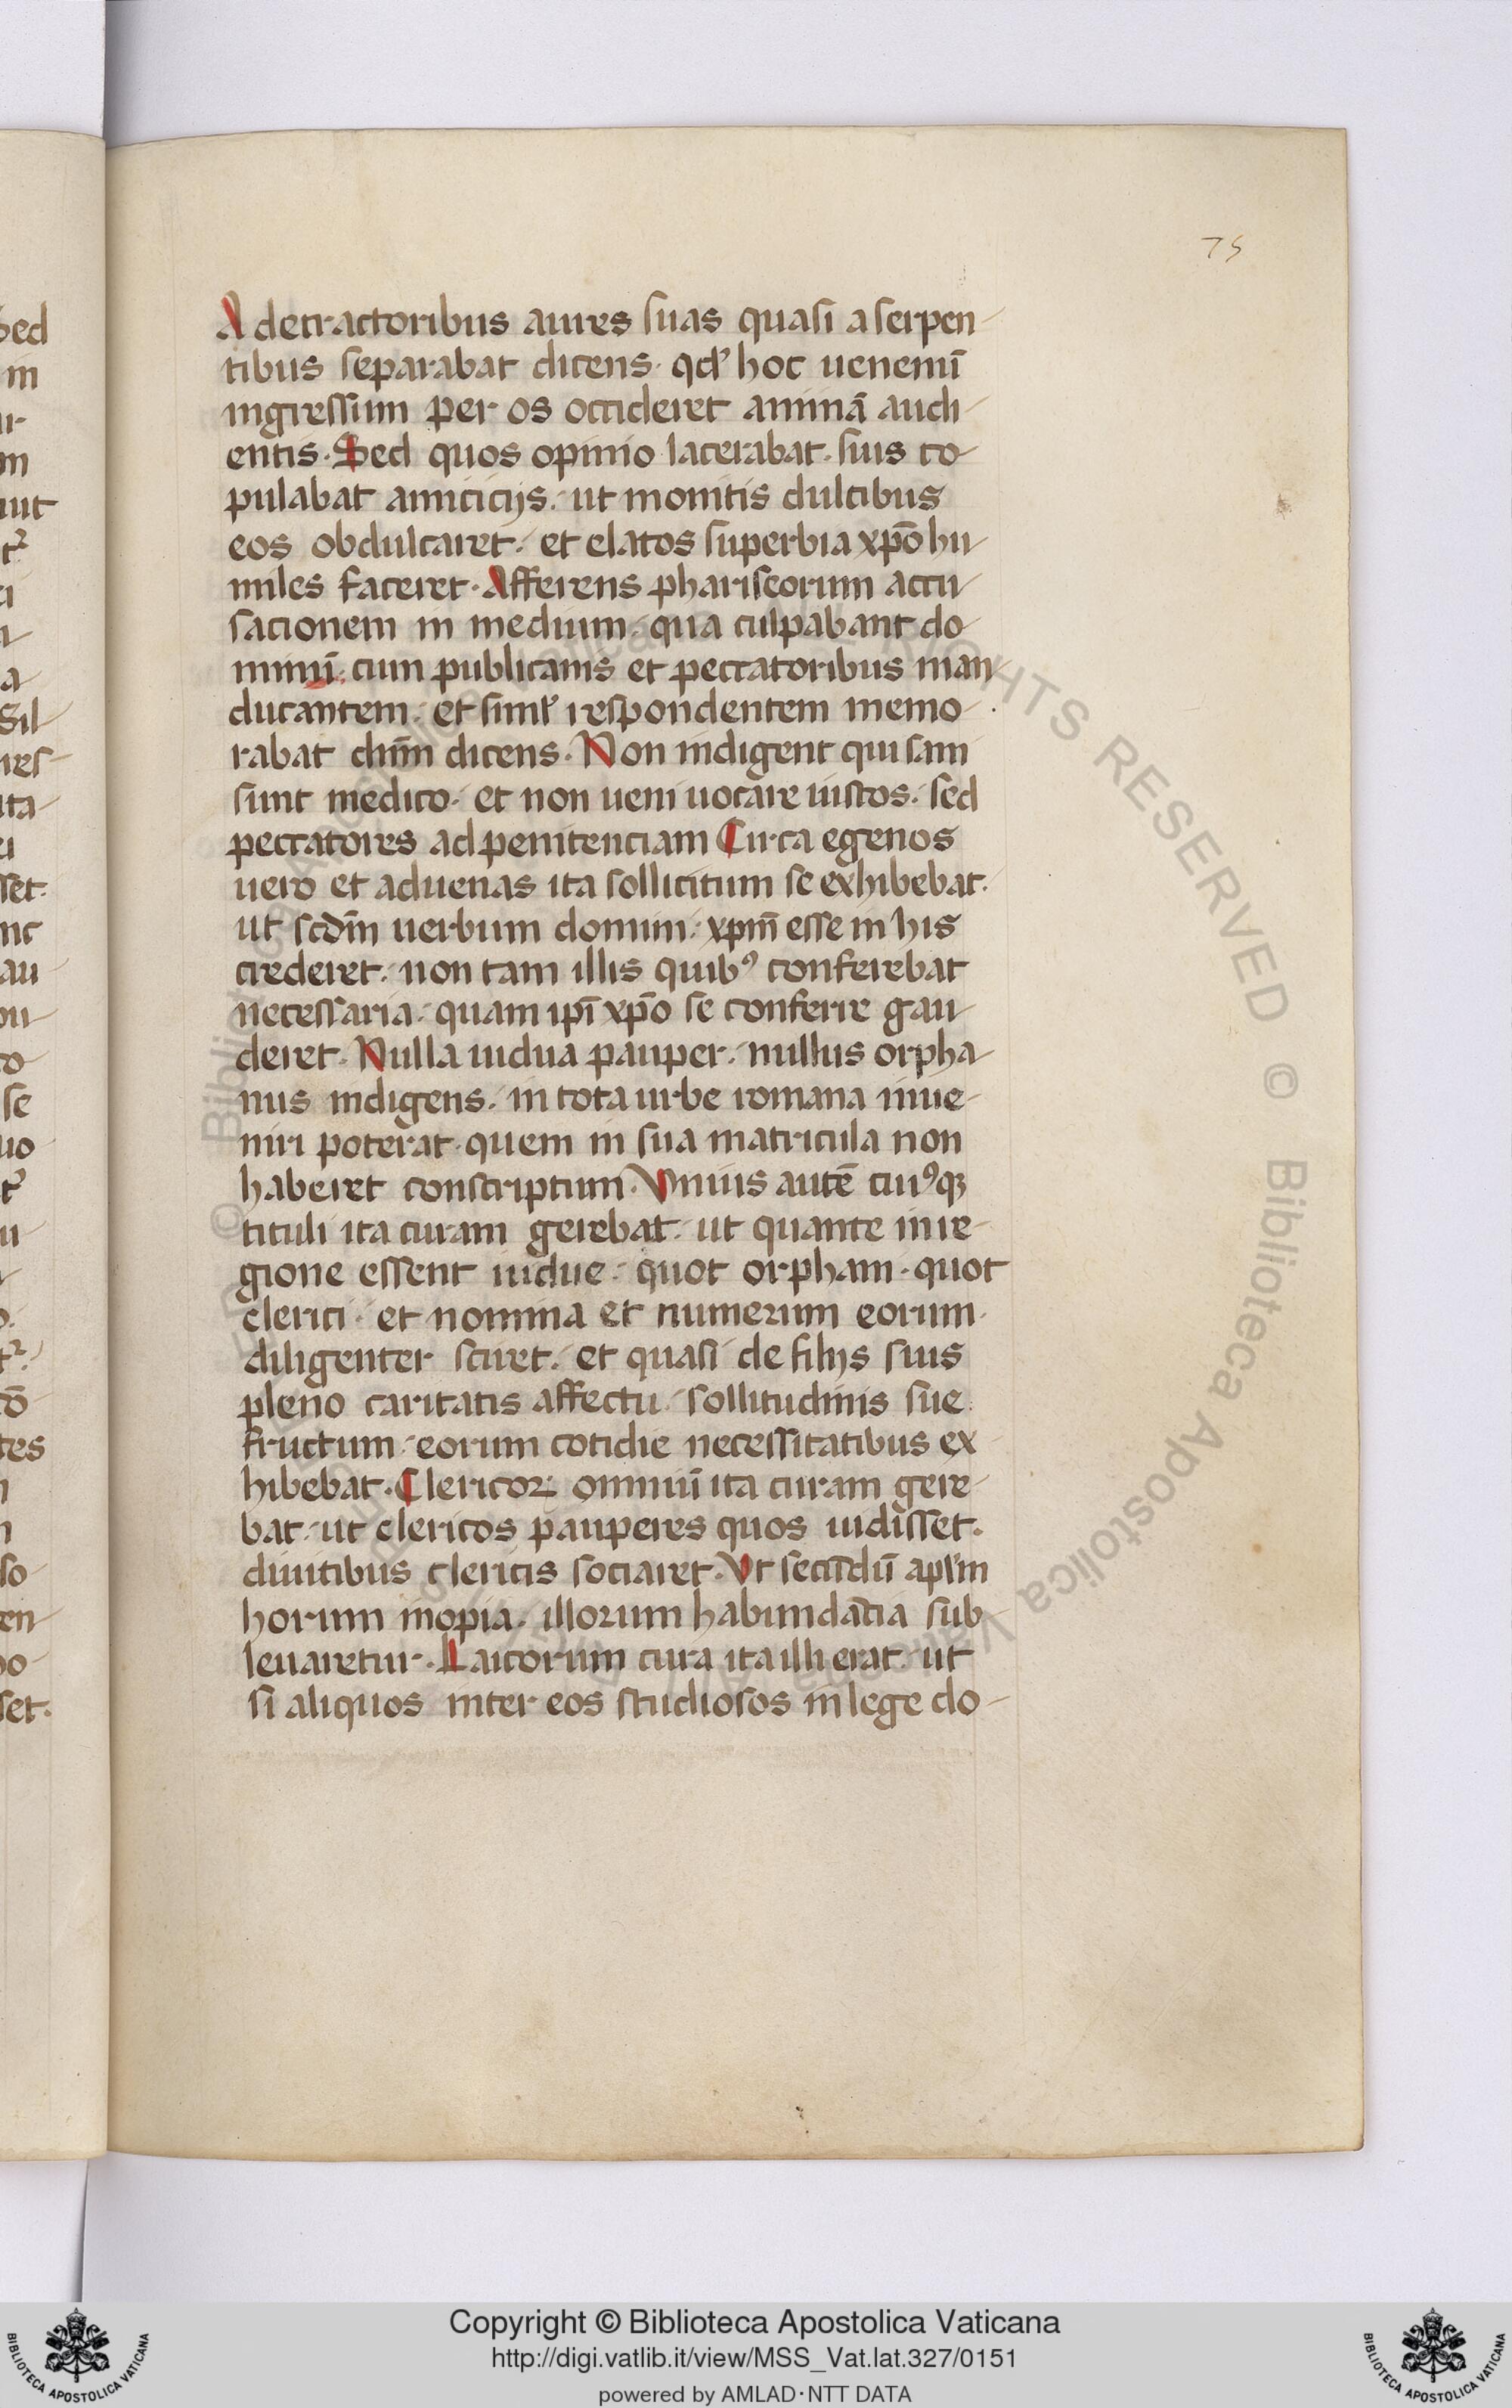 75
A detractoribus aures suas quasi a serpen-
tibus separabat dicens. qđ hoc uenenū
ingressum per os occideret animā audi-
entis. Sed quos opinio lacerabat. suis co-
pulabat amicicijs. ut monitis dulcibus
eos obdulcaret. et elatos superbia xp̄o hu-
miles faceret. Afferens phariseorum accu-
sacionem in medium. qua culpabant do-
minū. cum publicanis et peccatoribus man-
ducantem. et simꝉ respondentem memo-
rabat dn̄m dicens. Non indigent qui sani
sunt medico. et non ueni uocare iustos. sed
peccatores ad penitenciam Circa egenos
uero et aduenas ita sollicitum se exhibebat.
ut scdm̄ uerbum domini. xpm̄ esse in his
crederet. non tam illis quibꝰ conferebat
necessaria. quam ipī xp̄o se conferre gau-
deret. Nulla uidua pauper. nullus orpha-
nus indigens. in tota urbe romana inue-
niri poterat. quem in sua matricula non
haberet conscriptum. Vnius autē cuiꝰqꝫ
tituli ita curam gerebat. ut quante in re-
gione essent uidue. quot orphani. quot
clerici. et nomina et numerum eorum.
diligenter sciret. et quasi de filijs suis
pleno caritatis affectu. sollitudinis sue
fructum. eorum cotidie necessitatibus ex-
hibebat. Clericoꝝ omniū ita curam gere-
bat. ut clericos pauperes quos uidisset.
diuitibus clericis sociaret. Vt secundū apłm
horum inopia. illorum habundācia sub-
leuaretur. Laicorum cura ita illi erat. ut
si aliquos inter eos studiosos in lege do-
© Biblioteca Apostolica Vaticana ALL RIGHTS RESERVED © Biblioteca Apostolica Vaticana
Copyright © Biblioteca Apostolica Vaticana
http://digi.vatlib.it/view/MSS_Vat.lat.327/0151
powered by AMLAD·NTT DATA
BIBLIOTECA APOSTOLICA VATICANA
BIBLIOTECA APOSTOLICA VATICANA